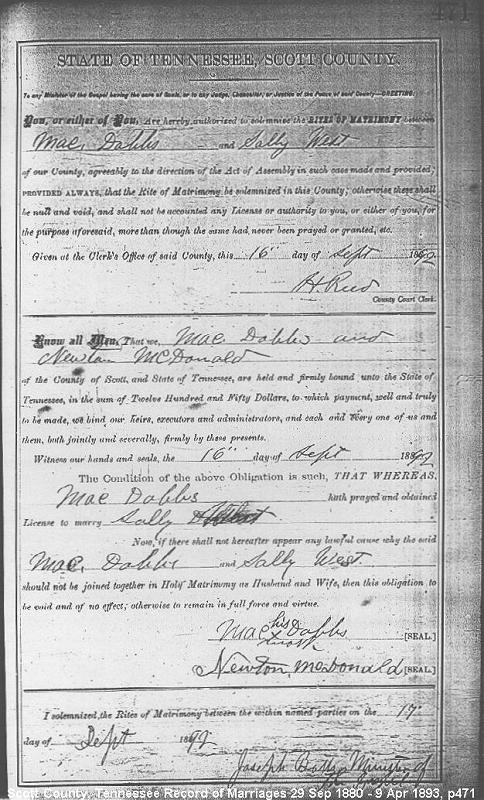 471
STATE OF TENNESSEE, SCOTT COUNTY.
To any Minister of the Gospel having the care of Souls, or to any Judge, Chancellor, or Justice of the Peace of said County—GREETING:
You, or either of You, Are hereby authorized to solemnize the RITES OF MATRIMONY between
Mac. Dabbs and Sally West
of our County, agreeably to the direction of the Act of Assembly in such case made and provided;
PROVIDED ALWAYS, that the Rite of Matrimony be solemnized in this County; otherwise these shall
be null and void, and shall not be accounted any License or authority to you, or either of you, for
the purpose aforesaid, more than though the same had never been prayed or granted, etc.
Given at the Clerk's Office of said County, this 16" day of Sept 1892
H. Reed
County Court Clerk.
Know all Men, That we, Mac Dabbs and
Newton McDonald
of the County of Scott, and State of Tennessee, are held and firmly bound unto the State of
Tennessee, in the sum of Twelve Hundred and Fifty Dollars, to which payment, well and truly
to be made, we bind our Heirs, executors and administrators, and each and every one of us and
them, both jointly and severally, firmly by these presents.
Witness our hands and seals, the 16" day of Sept 1892
The Condition of the above Obligation is such, THAT WHEREAS,
Mac Dabbs hath prayed and obtained
License to marry Sally West
Now, if there shall not hereafter appear any lawful cause why the said
Mac. Dabbs and Sally West.
should not be joined together in Holy Matrimony as Husband and Wife, then this obligation to
be void and of no effect; otherwise to remain in full force and virtue.
Mac his Dabbs [SEAL.]
mark
Newton McDonald [SEAL.]
I solemnized the Rites of Matrimony between the within named parties on the 17"
day of Sept 1892
Joseph Minister of
The Gospel
Scott County, Tennessee Record of Marriages 29 Sep 1880 - 9 Apr 1893, p471